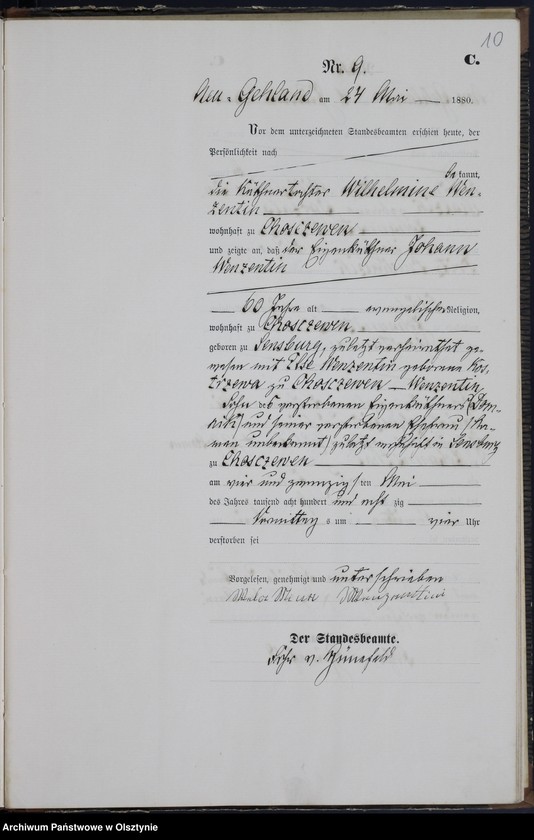 10
C.
Nr. 9.
Neu-Gehland am 24 Mai 1880.
Vor dem unterzeichneten Standesbeamten erschien heute, der
Persönlichkeit nach
be kannt,
die Käthnertochter Wilhelmine Wen-
zentin
wohnhaft zu Chosczewen
und zeigte an, daß der Eigenkäthner Johann
Wenzentin
60 Jahre alt evangelischer Religion,
wohnhaft zu Chosczewen
geboren zu Sensburg, zuletzt verheirathet ge-
wesen mit Else Wenzentin geborene Kos-
trzewa zu Chosczewen Wenzentin
Sohn des verstorbenen Eigenkäthners
und seiner verstorbenen Ehefrau (Na-
men unbekannt) zuletzt in Sensburg
zu Chosczewen
am vier und zwanzig sten Mai
des Jahres tausend acht hundert und acht zig
Vormittag s um vier Uhr
verstorben sei
Vorgelesen, genehmigt und unterschrieben
Der Standesbeamte.
Frhr v. Hünefeld
Archiwum Państwowe w Olsztynie